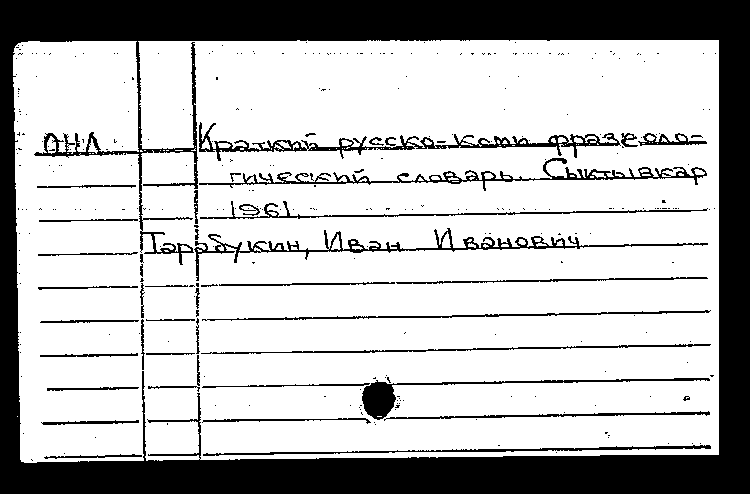 ОНЛ Краткий русско-коми фразеоло-
гический словарь. Сыктывкар
1961.
Тарабукин, Иван Иванович